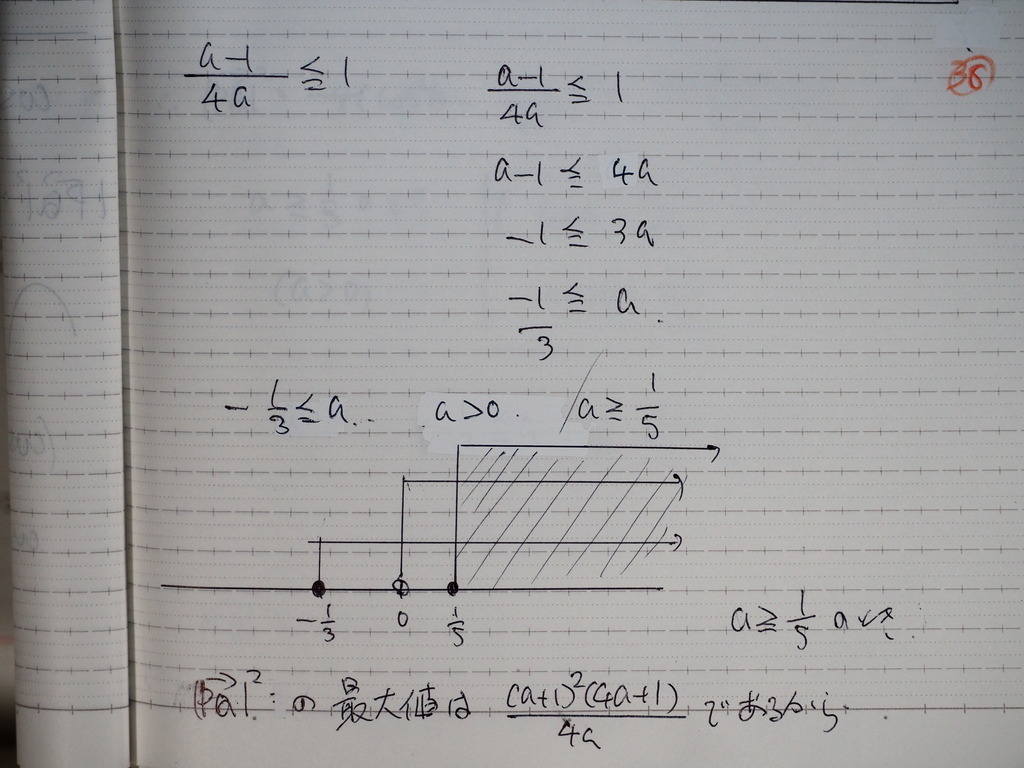 38
(a-1)/4a ≦ 1
(a-1)/4a ≦ 1
a-1 ≦ 4a
-1 ≦ 3a
-1/3 ≦ a.
-1/3 ≦ a.. a>0. a≧1/5
-1/3 0 1/5
a≧1/5 のとき
|PQ|²: の最大値は (a+1)²(4a+1)/4a であるから